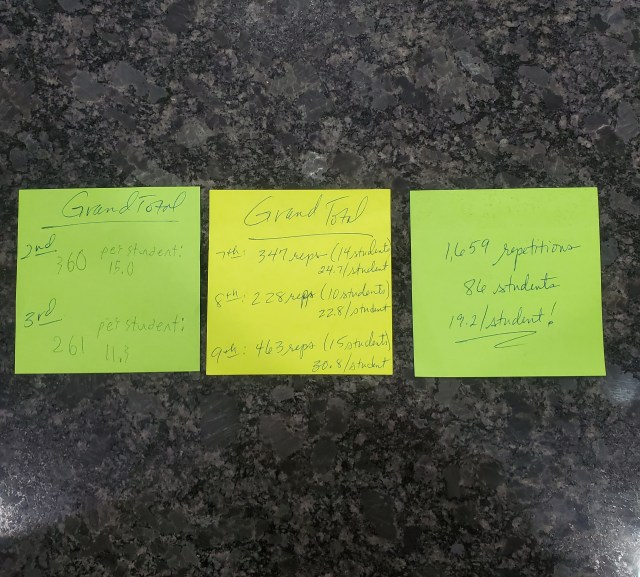 Grand Total
2nd
360 per student:
15.0
3rd
261 per student:
11.3
Grand Total
7th: 347 reps (14 student
24.7/student
8th: 228 reps (10 students)
22.8/student
9th: 463 reps (15 students)
30.8/student
1,659 repetitions
86 students
19.2/student!